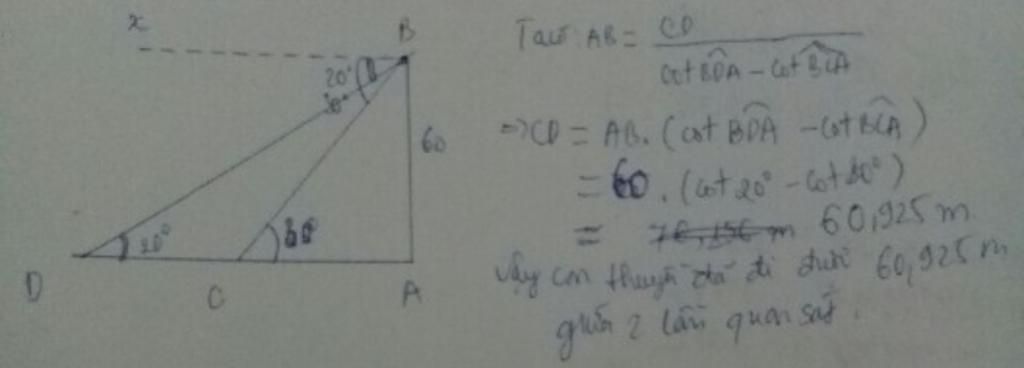 x
B
20°
60
20°
D
C
A
Ta có: AB = CD / (cot BDA - cot BCA)
=> CD = AB. (cot BDA - cot BCA)
= 60. (cot 20° - cot
= 60,925 m
Vậy con thuyền đã đi được 60,925 m
giữa 2 lần quan sát.